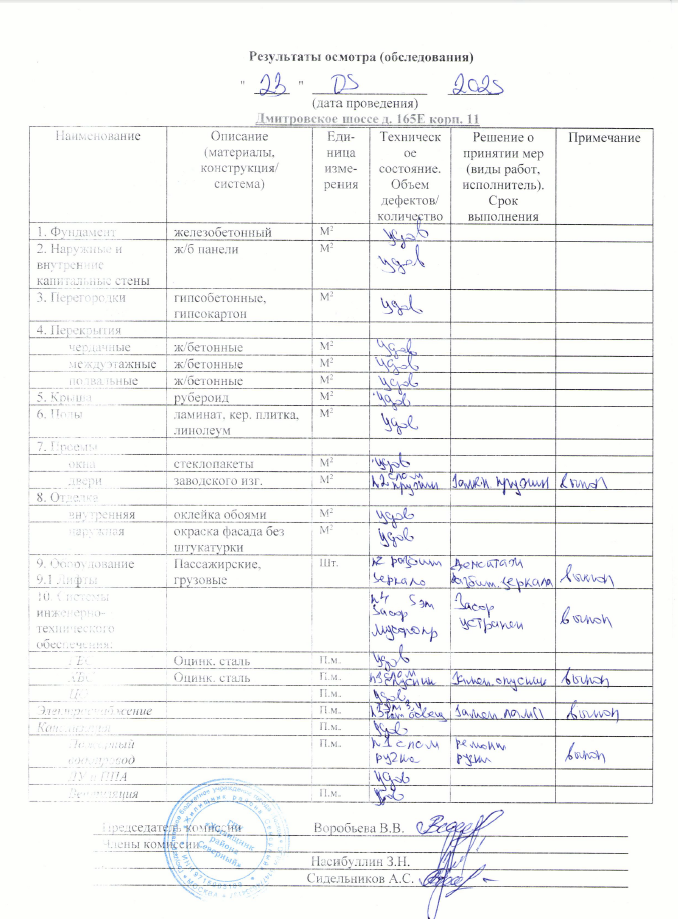 Результаты осмотра (обследования)
" 23 " 05 2025
(дата проведения)
Дмитровское шоссе д. 165Е корп. 11
Наименование Описание (материалы, конструкция/ система) Еди- ница изме- рения Техническ ое состояние. Объем дефектов/ количество Решение о принятии мер (виды работ, исполнитель). Срок выполнения Примечание
1. Фундамент железобетонный М² удов
2. Наружные и внутренние капитальные стены ж/б панели М² удов
3. Перегородки гипсобетонные, гипсокартон М² удов
4. Перекрытия
чердачные ж/бетонные М² удов
междуэтажные ж/бетонные М² удов
подвальные ж/бетонные М² удов
5. Крыша рубероид М² удов
6. Полы ламинат, кер. плитка, линолеум М² удов
7. Проемы
окна стеклопакеты М² удов
двери заводского изг. М² п2 слом пружин Замен пружин выпол
8. Отделка
внутренняя оклейка обоями М² удов
наружная окраска фасада без штукатурки М² удов
9. Оборудование Пассажирские, Шт. п2 разбит
9.1 Лифты грузовые зеркало разбит. зеркала выпол
10. Системы инженерно- технического обеспечения: п4 5 эт Засор Засор устранен выпол
ГВС Оцинк. сталь П.м. удов
ХВС Оцинк. сталь П.м. п3 слом выпол
ЦО П.м. удов
Электроснабжение П.м. Замен. ламп выпол
Канализация П.м. удов
Пожарный водопровод П.м. п1 слом ручка ремонт ручки выпол
ДУ и ППА удов
Вентиляция П.м. удов
Председатель комиссии Воробьева В.В.
Члены комиссии
Насибуллин З.Н.
Сидельников А.С.
ГБУ «Жилищник района Северный»